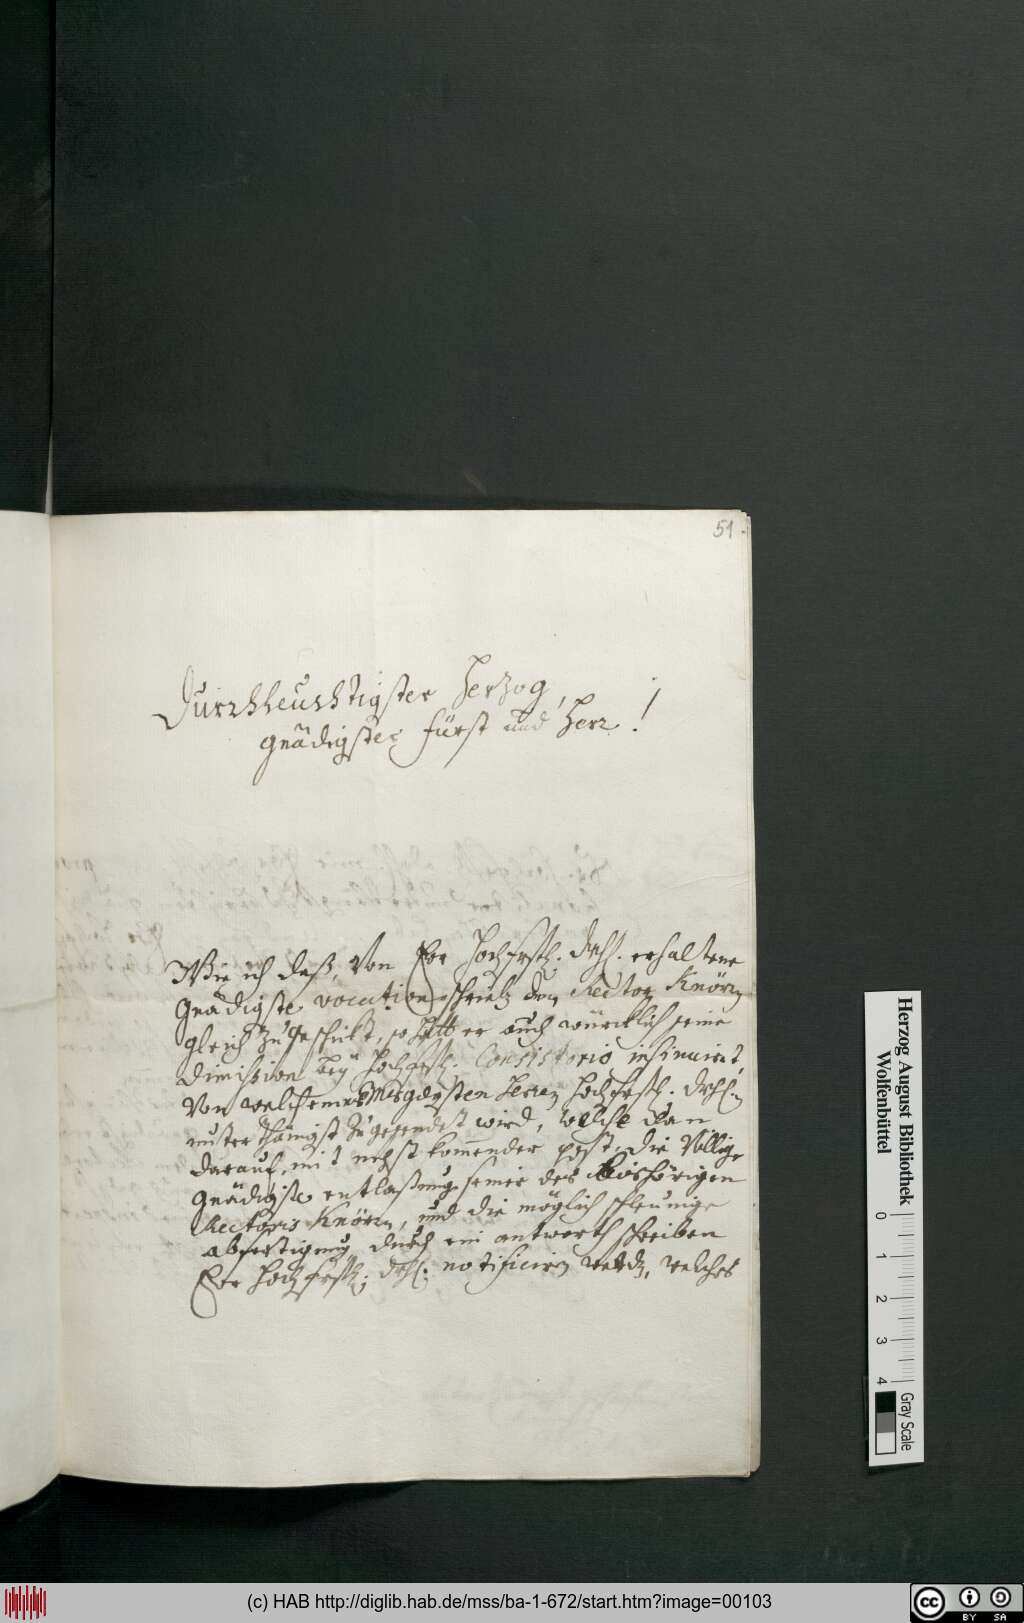 51.
Durchleuchtigster Herzog,
gnädigster Fürst und Herr!
Wie ich daß, von Ew. Hochfrstl. Drchl. erhaltene
gnädigste vocationschrieb dem Rector Knörn
gleich zugeschickt, so hatt er auch würcklich seine
dimission bey Hochfrstl. Consistorio insinuiret,
von welchem Herrn Hochfrstl. Drchl.
unterthänigst zugesendet wird, welche dan
darauf mit nechst kommender post, die völlige
gnädigste entlaßung seiner des bishörigen
Rectoris Knörn, und die möglich schleunige
abfertigung durch ein antworth schreiben
Ewr Hochfrstl. Drchl. notificiren werd, welches
Herzog August Bibliothek
Wolfenbüttel
0 1 2 3 4
Gray Scale
(c) HAB http://diglib.hab.de/mss/ba-1-672/start.htm?image=00103
cc BY SA